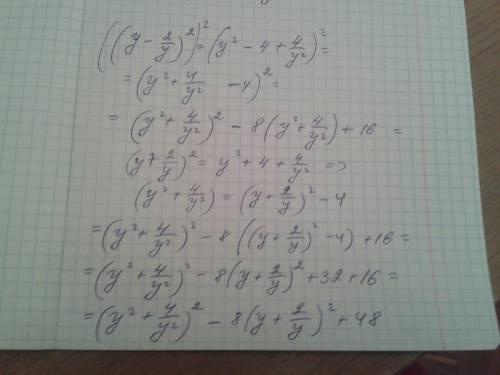 (((y - 2/y)²)² = (y² - 4 + 4/y²)² =
= (y² + 4/y² - 4)² =
= (y² + 4/y²)² - 8(y² + 4/y²) + 16 =
(y + 2/y)² = y² + 4 + 4/y² =>
(y² + 4/y²) = (y + 2/y)² - 4
= (y² + 4/y²)² - 8((y + 2/y)² - 4) + 16 =
= (y² + 4/y²)² - 8(y + 2/y)² + 32 + 16 =
= (y² + 4/y²)² - 8(y + 2/y)² + 48